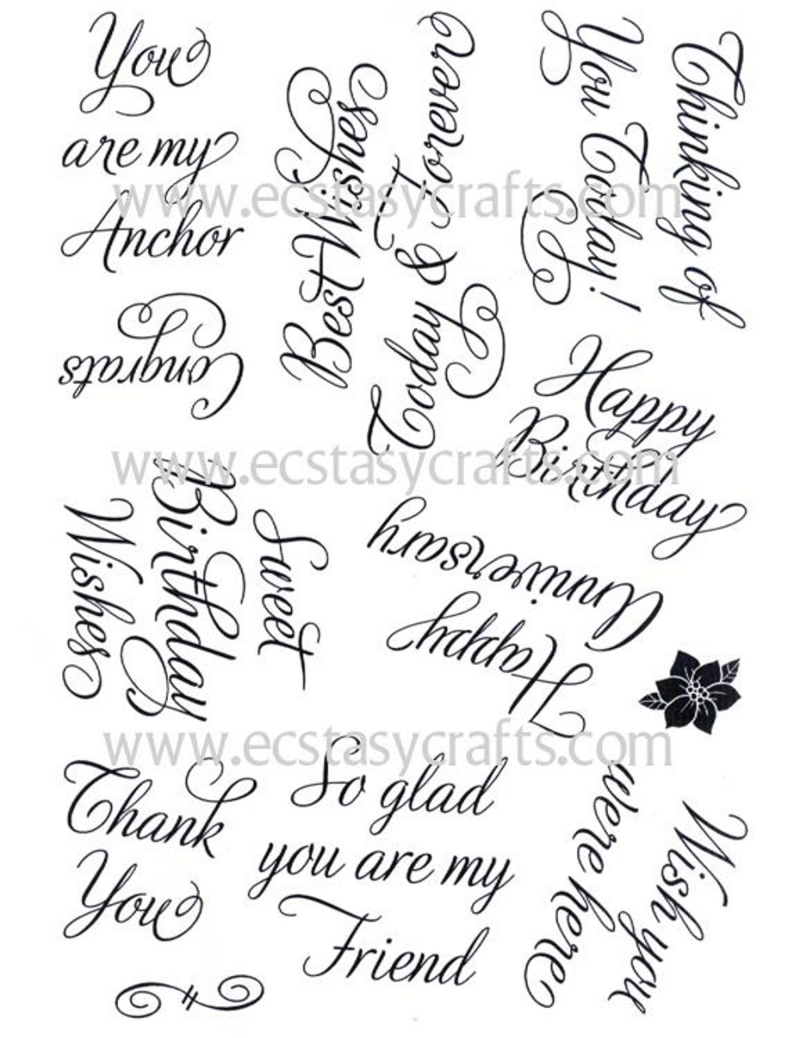 You
are my
Anchor
Best Wishes
Today & Forever
Thinking of
You Today!
www.ecstasycrafts.com
Congrats
Happy
Birthday
www.ecstasycrafts.com
Sweet
Birthday
Wishes
Happy
Anniversary
www.ecstasycrafts.com
Thank
You
So glad
you are my
Friend
Wish you
were here